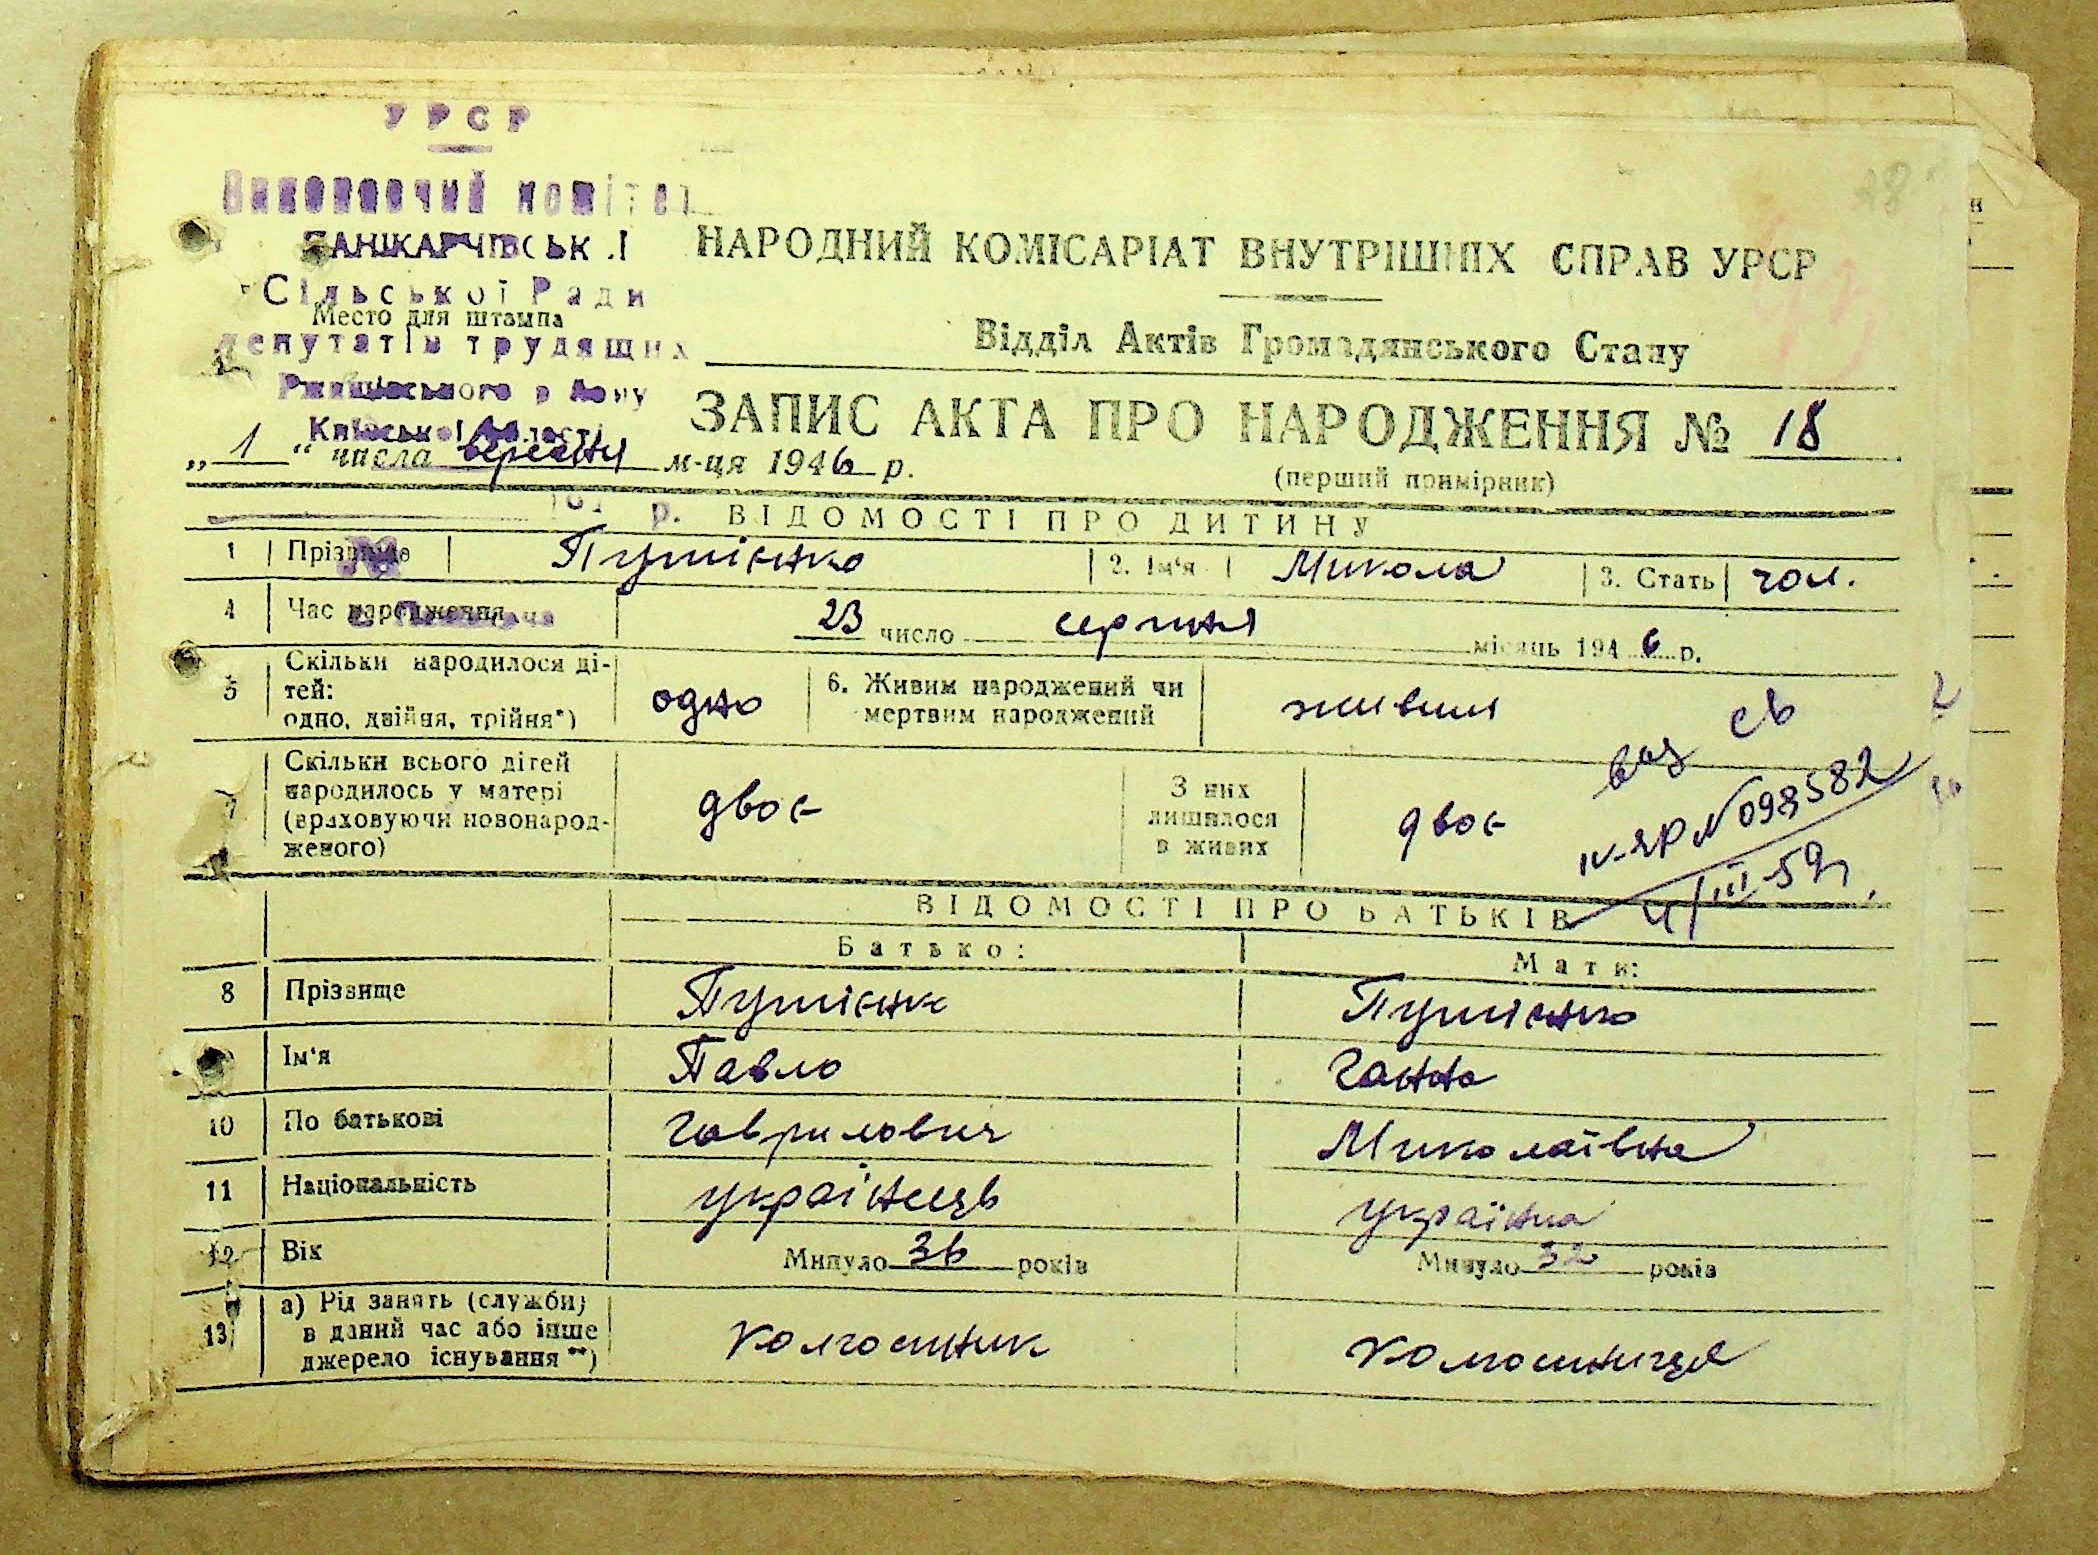 УРСР
Виконавчий комітет
ПАНІКАРЧІВСЬК І
Сільської Ради
Место для штампа
депутатів трудящих
Ржищівського р йону
Київськ області
28
НАРОДНИЙ КОМІСАРІАТ ВНУТРІШНІХ СПРАВ УРСР
Відділ Актів Громадянського Стану
ЗАПИС АКТА ПРО НАРОДЖЕННЯ № 18
(перший примірник)
„ 1 “ числа вересня м-ця 1946 р.
194 р.
ВІДОМОСТІ ПРО ДИТИНУ
1 Прізвище Путієнко 2. Ім'я Микола 3. Стать чол.
4 Час народження 23 число серпня місяць 1946 р.
5 Скільки народилося ді-
тей:
одно, двійня, трійня*) одно
6. Живим народжений чи
мертвим народжений живим
7 Скільки всього дітей
народилось у матері
(враховуючи новонарод-
женого) двоє
З них
лишилося
в живих двоє
вид св
IV-ЯР № 098582
4/III-59р.
ВІДОМОСТІ ПРО БАТЬКІВ
Батько: Мати:
8 Прізвище Путієнк Путієнко
9 Ім'я Павло Ганна
10 По батькові Гаврилович Миколаївна
11 Національність українець українка
12 Вік Минуло 36 років Минуло 32 років
13 а) Рід занять (служби)
в даний час або інше
джерело існування**) колгоспник колгоспниця